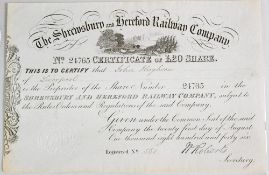 The Shrewsbury and Hereford Railway Company
No. 24735 CERTIFICATE OF £20 SHARE.
THIS IS TO CERTIFY that John Bigham
of Liverpool
is the Proprietor of the Share Number 24735 in the
SHREWSBURY AND HEREFORD RAILWAY COMPANY, subject to
the Rules, Orders and Regulations of the said Company.
GIVEN under the Common Seal of the said
Company the twenty first day of August
One thousand eight hundred and forty six
Registered No.
Secretary.